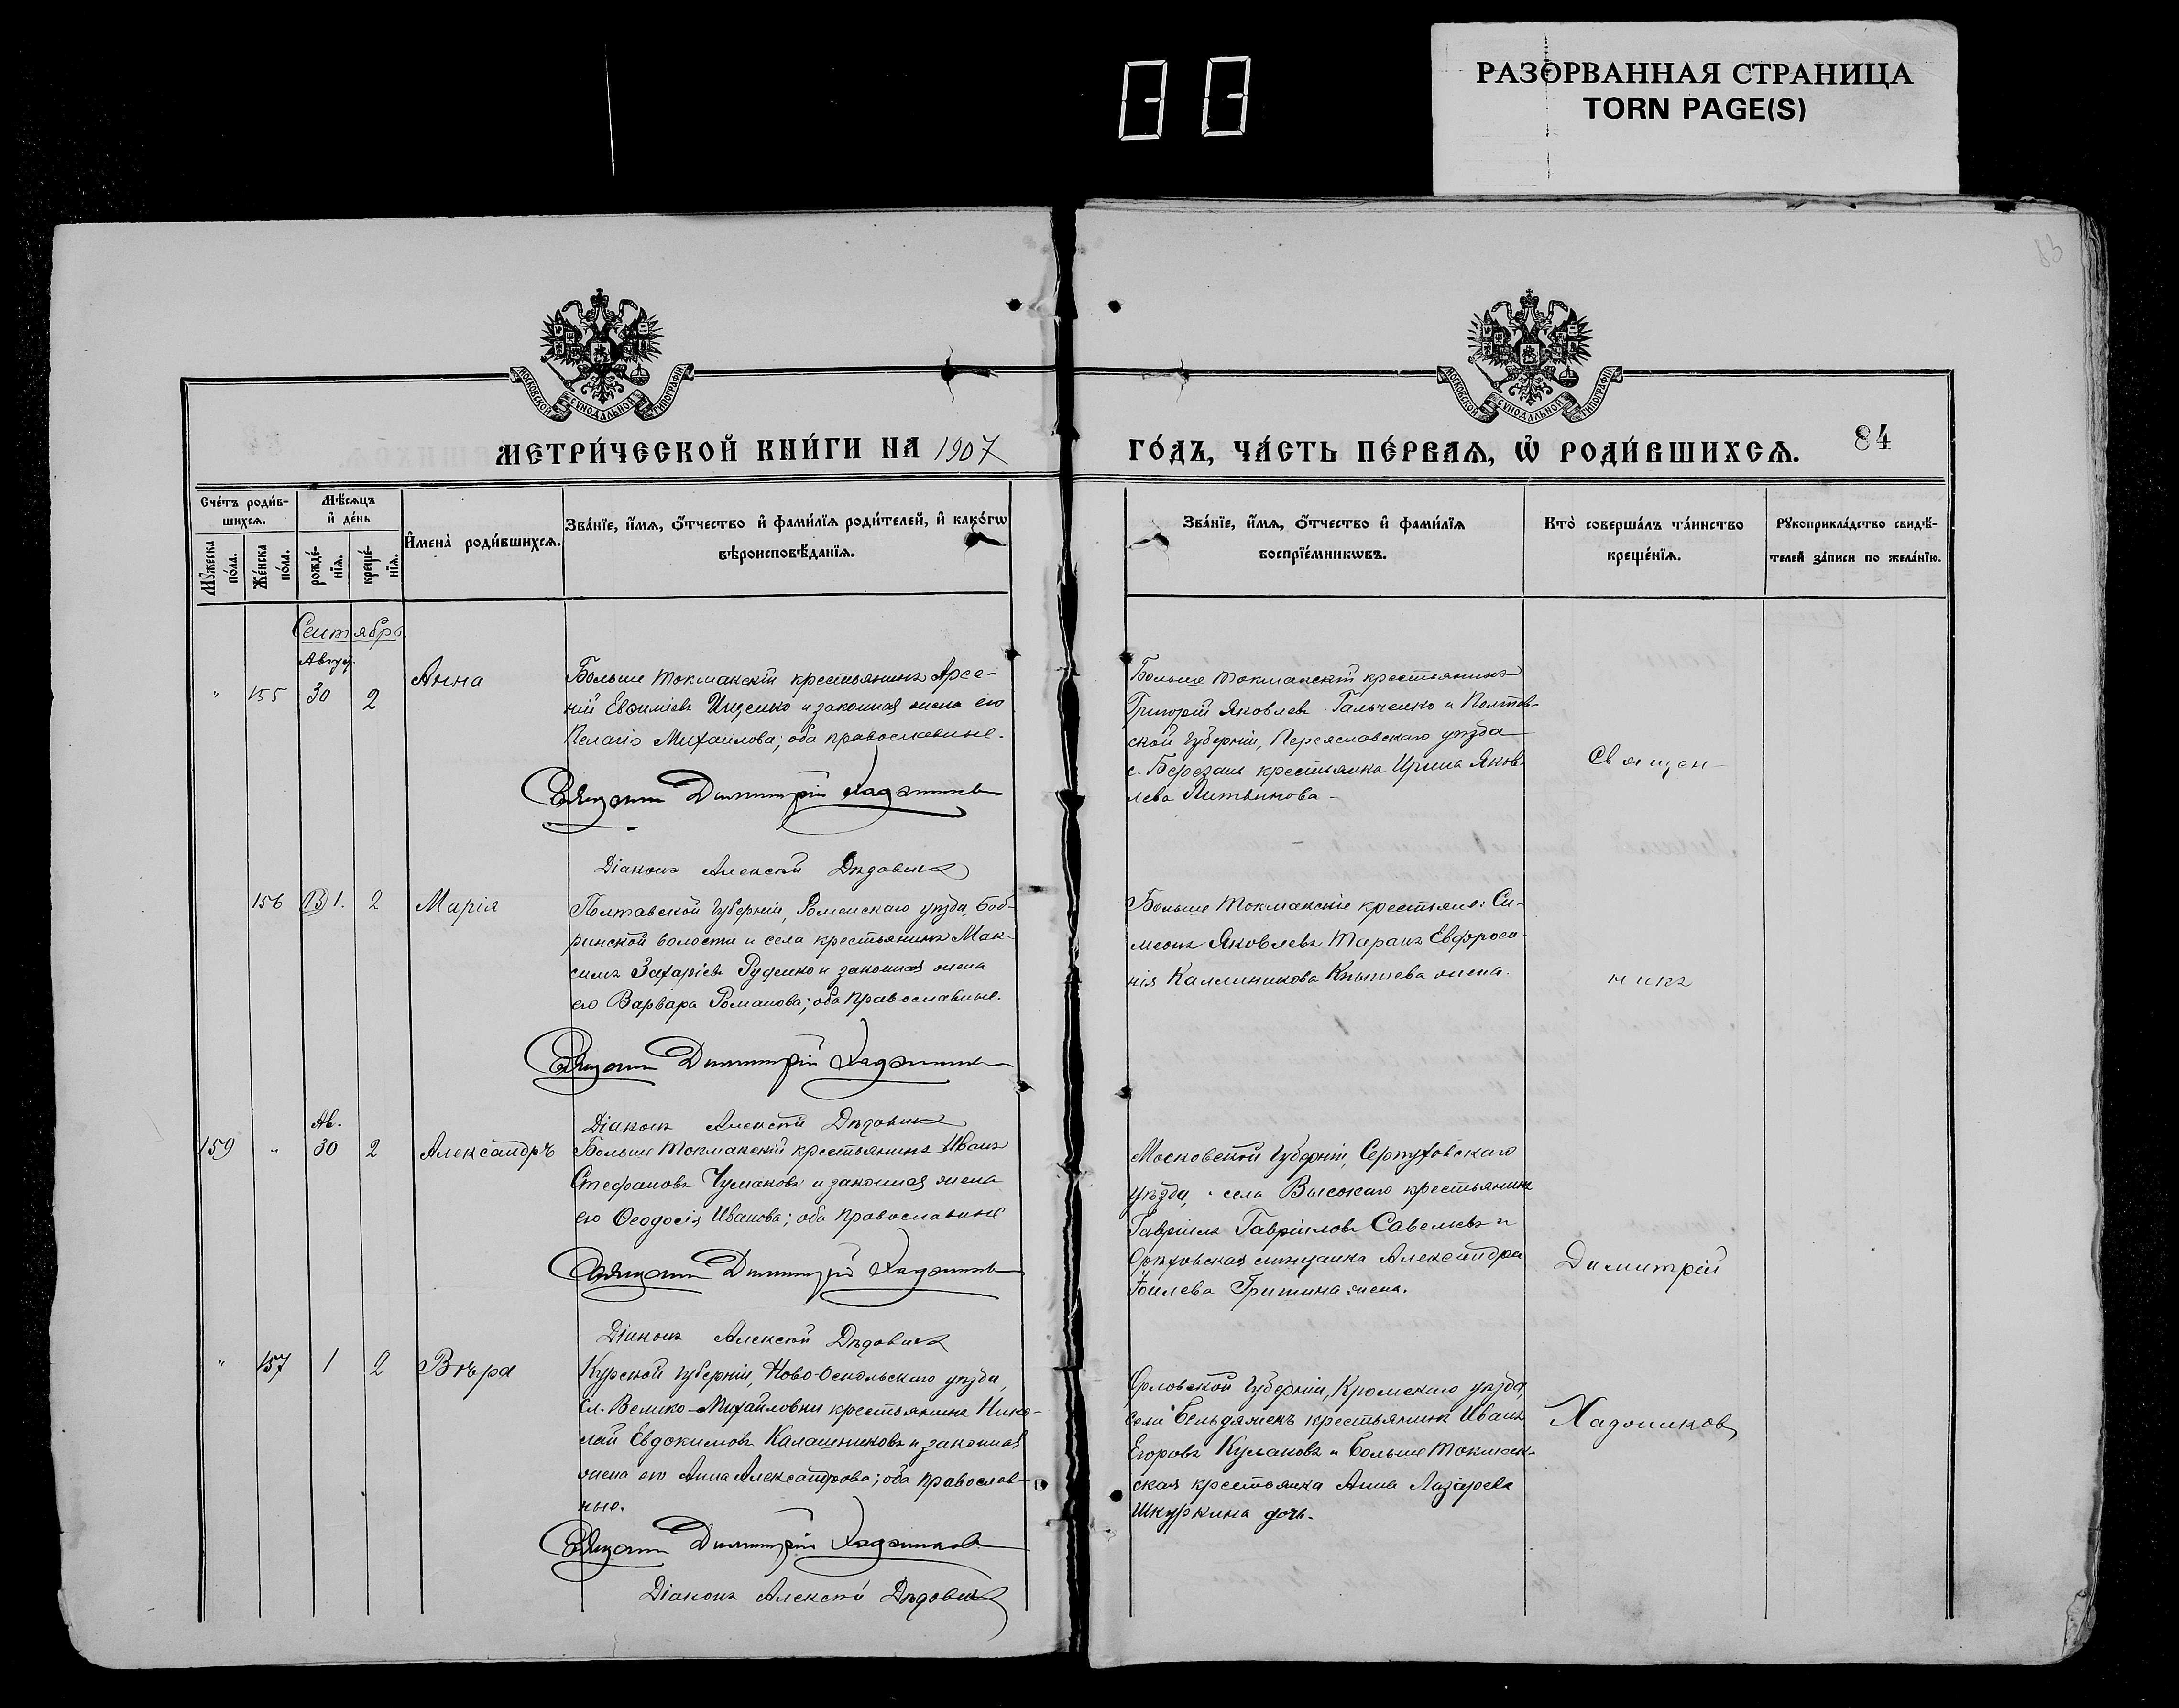 РАЗОРВАННАЯ СТРАНИЦА
TORN PAGE(S)
83
МОСКОВСКОЙ СѴНОДАЛЬНОЙ ТИПОГРАФІИ
МОСКОВСКОЙ СѴНОДАЛЬНОЙ ТИПОГРАФІИ
МЕТРИ́ЧЕСКОЙ КНИ́ГИ НА 1907
ГО́ДЪ, ЧА́СТЬ ПЕ́РВАѦ, Ѡ҆ РОДИ́ВШИХСѦ. 84
Сче́тъ роди́в-
шихсѧ.
Мꙋ́жеска по́ла.
Же́нска по́ла.
Мѣ́сѧцъ
и҆ де́нь
рожде́-
нїѧ.
креще́-
нїѧ.
И҆мена̀ роди́вшихсѧ.
Зва́нїе, и҆́мѧ, ѻ҆́тчество и҆ фами́лїѧ роди́телей, и҆ како́гѡ
вѣроисповѣ́данїѧ.
Зва́нїе, и҆́мѧ, ѻ҆́тчество и҆ фами́лїѧ
воспрїе́мникѡвъ.
Кто̀ соверша́лъ та́инство
креще́нїѧ.
Рꙋкоприкла́дство свидѣ́-
телей за́писи по жела́нїю.
Сентябрь
Август.
" 155 30 2 Анна
Больше Токмакскій крестьянинъ Арсе-
ній Евфиміевъ Ищенко и законная жена его
Пелагія Михайлова; оба православные.
Священникъ Димитрій Хадженковъ
Діаконъ Алексѣй Дѣдовичъ
Больше Токмакскій крестьянинъ
Григорій Яковлевъ Гальченко и Полтав-
ской Губерніи, Переяславскаго уѣзда
с. Березань крестьянка Ирина Яков-
лева Литвинова
Священ-
156 1. 2 Марія
Полтавской Губерніи, Роменскаго уѣзда, Боб-
ринской волости и села крестьянинъ Мак-
симъ Захаріевъ Руденко и законная жена
его Варвара Романова; оба православные.
Священникъ Димитрій
Діаконъ Алексѣй Дѣдовичъ
Больше Токмакскіе крестьяне: Си-
меонъ Яковлевъ Таранъ Евфроси-
нія Каллиникова жена.
никъ
Ав.
159 " 30 2 Александръ
Больше Токмакскій крестьянинъ Иванъ
Стефановъ Чумаковъ и законная жена
его Ѳеодосія Иванова; оба православные
Священникъ Димитрій
Діаконъ Алексѣй Дѣдовичъ
Московской Губерніи, Серпуховскаго
уѣзда, села Высокаго крестьянинъ
Гавріилъ Гавріиловъ Савельевъ и
Орѣховская мѣщанка Александра
Гришина жена.
Димитрій
" 157 1 2 Вѣра
Курской Губерніи, Ново-Оскольскаго уѣзда,
сл. Велико-Михайловки крестьянинъ Нико-
лай Евдокимовъ Калашниковъ и законная
жена его Анна Александрова; оба православ-
ные.
Священникъ Димитрій
Діаконъ Алексѣй Дѣдовичъ
Орловской Губерніи, Кромскаго уѣзда,
села Бельдяжекъ крестьянинъ Иванъ
Егоровъ Кулаковъ и Больше Токмак-
ская крестьянка Анна Лазарева
Шкуркина дочь.